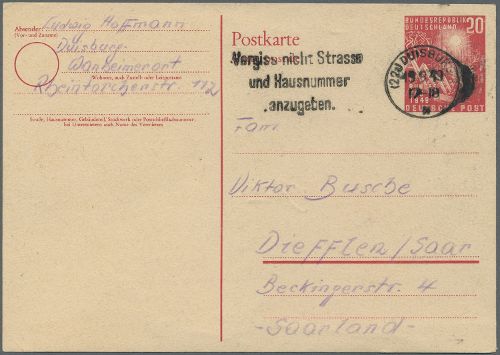 Absender: Ludwig Hoffmann
(Vor- und Zuname)
Duisburg
Wanheimerort
Wohnort, auch Zustell- oder Leitpostamt
Rheintörchenstr 112
Straße, Hausnummer, Gebäudeteil, Stockwerk oder Postschließfachnummer,
bei Untermietern auch Name des Vermieters
Postkarte
Vergiss nicht Strasse
und Hausnummer
angugeben.
BUNDESREPUBLIK
DEUTSCHLAND
20
(22a) DUISBURG
1949
DEUTSCHE POST
Fam.
Viktor Busche
Diefflen/Saar
Beckingerstr. 4
-Saarland-